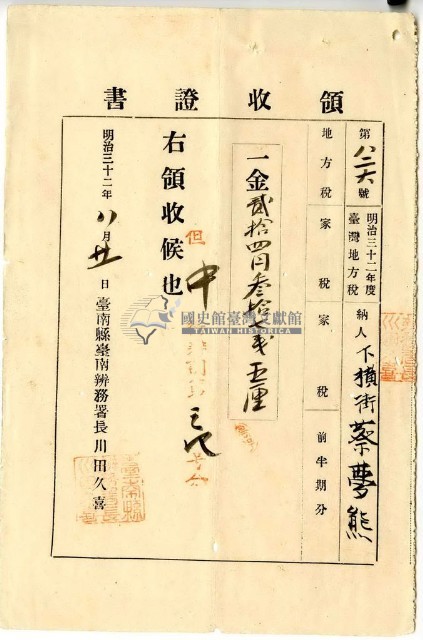 領收證書
第八二六號
明治三十二年度
臺灣地方稅
納人 下橫街蔡夢熊
地方稅 家稅 家稅 前半期分
一金貳拾四円叁拾七戔五厘
右領收候也
但
中
明治三十二年八月廿日
臺南縣臺南辨務署長川田久喜
國史館臺灣文獻館
TAIWAN HISTORICA